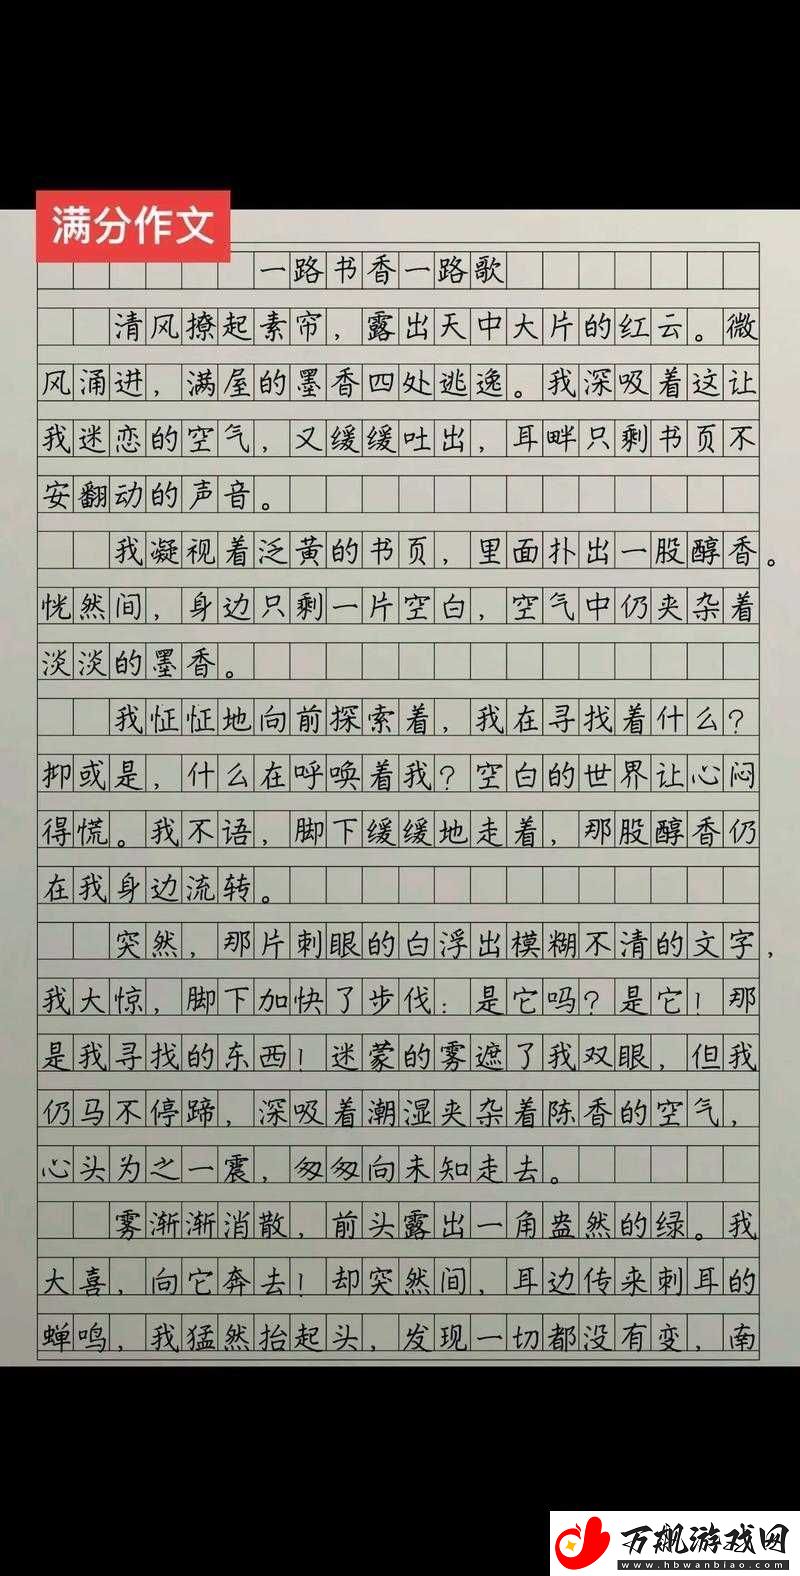 满分作文
一路书香一路歌
清风撩起素帘，露出天中大片的红云。微
风涌进，满屋的墨香四处逃逸。我深吸着这让
我迷恋的空气，又缓缓吐出，耳畔只剩书页不
安翻动的声音。
我凝视着泛黄的书页，里面扑出一股醇香。
恍然间，身边只剩一片空白，空气中仍夹杂着
淡淡的墨香。
我怔怔地向前探索着，我在寻找着什么？
抑或是，什么在呼唤着我？空白的世界让心闷
得慌。我不语，脚下缓缓地走着，那股醇香仍
在我身边流转。
突然，那片刺眼的白浮出模糊不清的文字，
我大惊，脚下加快了步伐：是它吗？是它！那
是我寻找的东西！迷蒙的雾遮了我双眼，但我
仍马不停蹄，深吸着潮湿夹杂着陈香的空气，
心头为之一震，匆匆向未知走去。
雾渐渐消散，前头露出一角盎然的绿。我
大喜，向它奔去！却突然间，耳边传来刺耳的
蝉鸣，我猛然抬起头，发现一切都没有变，南
万飙游戏网
www.hbwanbiao.com